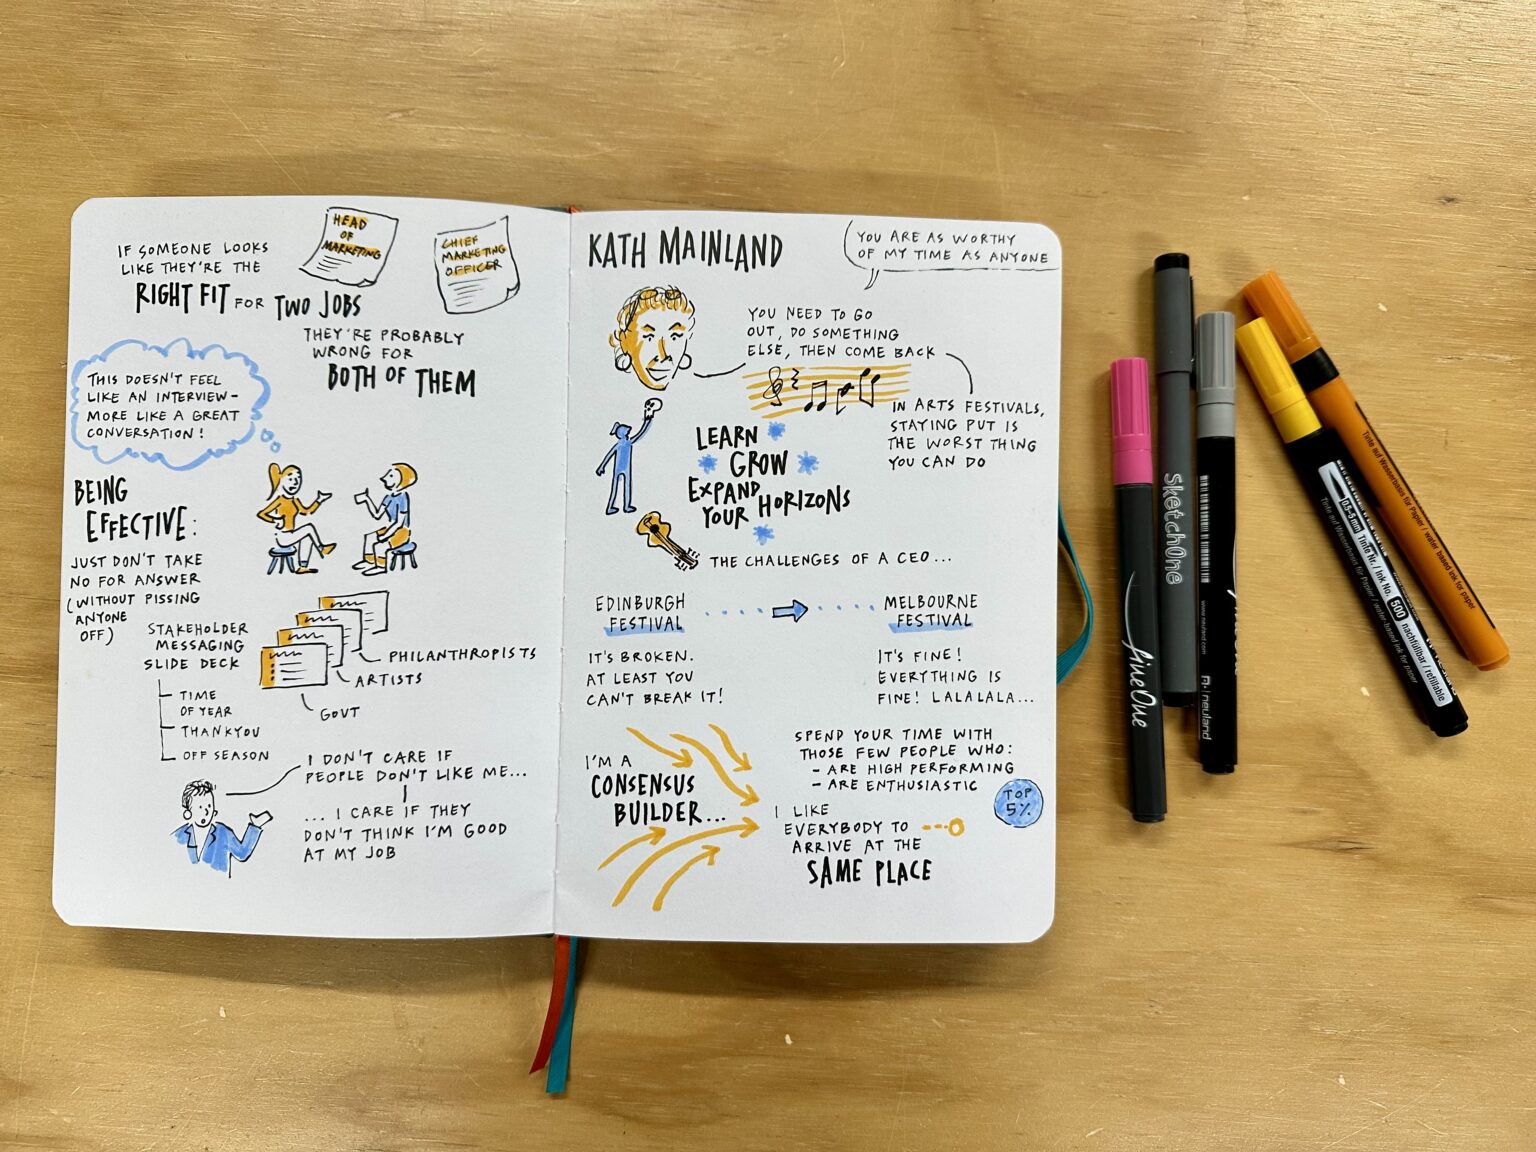 IF SOMEONE LOOKS
LIKE THEY'RE THE
RIGHT FIT FOR TWO JOBS
HEAD
OF
MARKETING
CHIEF
MARKETING
OFFICER
THEY'RE PROBABLY
WRONG FOR
BOTH OF THEM
THIS DOESN'T FEEL
LIKE AN INTERVIEW-
MORE LIKE A GREAT
CONVERSATION!
BEING
EFFECTIVE:
JUST DON'T TAKE
NO FOR ANSWER
(WITHOUT PISSING
ANYONE
OFF)
STAKEHOLDER
MESSAGING
SLIDE DECK
TIME
OF YEAR
THANKYOU
OFF SEASON
PHILANTHROPISTS
ARTISTS
GOVT
I DON'T CARE IF
PEOPLE DON'T LIKE ME...
... I CARE IF THEY
DON'T THINK I'M GOOD
AT MY JOB
KATH MAINLAND
YOU ARE AS WORTHY
OF MY TIME AS ANYONE
YOU NEED TO GO
OUT, DO SOMETHING
ELSE, THEN COME BACK
IN ARTS FESTIVALS,
STAYING PUT IS
THE WORST THING
YOU CAN DO
LEARN
GROW
EXPAND
YOUR HORIZONS
THE CHALLENGES OF A CEO...
EDINBURGH
FESTIVAL
MELBOURNE
FESTIVAL
IT'S BROKEN.
AT LEAST YOU
CAN'T BREAK IT!
IT'S FINE!
EVERYTHING IS
FINE! LALALALA...
I'M A
CONSENSUS
BUILDER...
SPEND YOUR TIME WITH
THOSE FEW PEOPLE WHO:
- ARE HIGH PERFORMING
- ARE ENTHUSIASTIC
TOP
5%
I LIKE
EVERYBODY TO
ARRIVE AT THE
SAME PLACE
fineOne
SketchOne
www.neuland.com
neuland
0,5-5 mm Tinte Nr. / Ink No. 500 nachfüllbar / refillable
Tinte auf Wasserbasis für Papier / water-based ink for paper
Tinte auf Wasserbasis für Papier / water based ink for paper